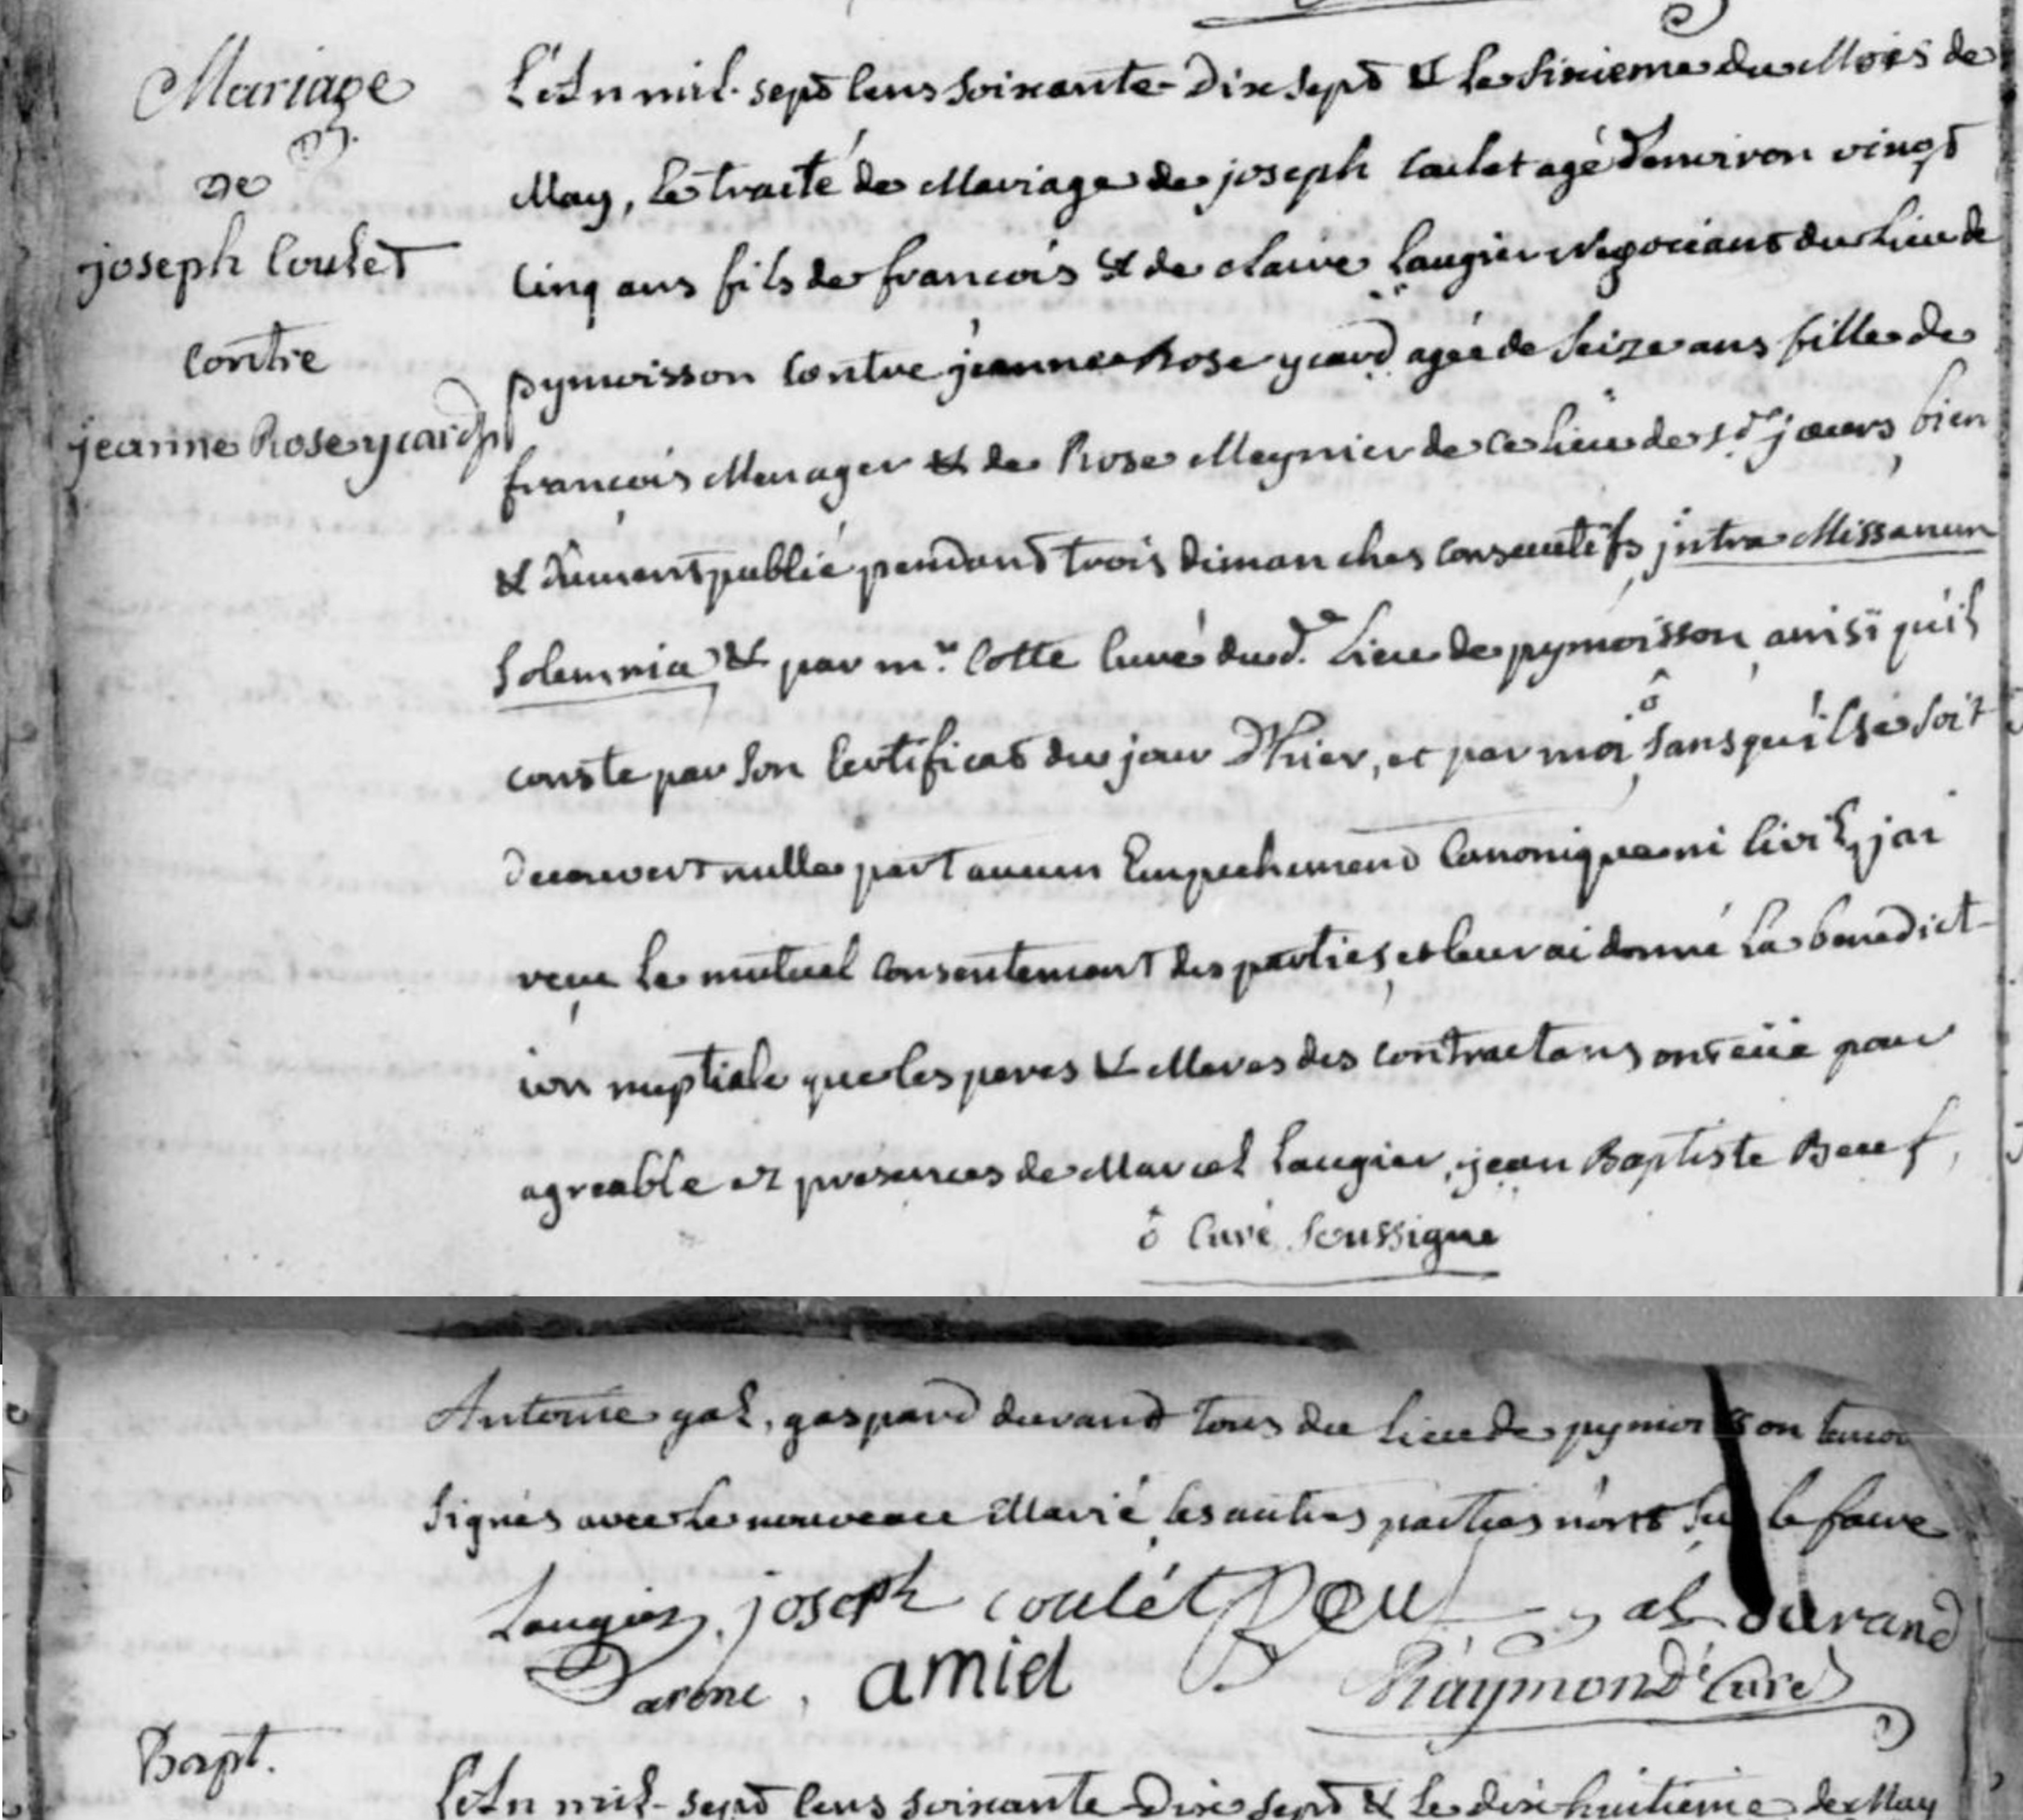 Mariage
de
joseph Coulet
contre
jeanne Rose ycard
L'An mil sept cens soixante-dix sept & le sixieme du Mois de
May, le traité de Mariage de joseph Coulet agé d'environ vingt
cinq ans fils de francois & de claire Laugier Negocians du lieu de
pymoisson contre jeanne Rose ycard agée de seize ans fille de
francois Menager & de Rose Meynier de ce lieu de st. jeurs, bien
& dument publié pendant trois dimanches consecutifs intra Missarum
solemnia & par mr. Cotte Curé dud. Lieu de pymoisson ainsi qu'il
conste par son Certificat du jour d'hier, et par moi ô sans qu'il se soit
decouvert nulle part aucun Empechement Canonique ni Civil, jai
reçu le mutuel consentement des parties, et leur ai donné la benedict-
ion nuptiale que les peres & Meres des contractans ont eüe pour
agreable ez presences de Marcel Laugier, jean Baptiste Beuf,
ô Curé Soussigné
Antoine gal, gaspard durand tous du lieu de pymoisson temoi
signés avec le nouveau Marié les autres parties n'ont su le faire
Laugier, joseph coulét Beuf gal durand
amiel Raymond Curé
Bapt.
L'An mil sept cens soixante Dix sept & le dix huitieme de May